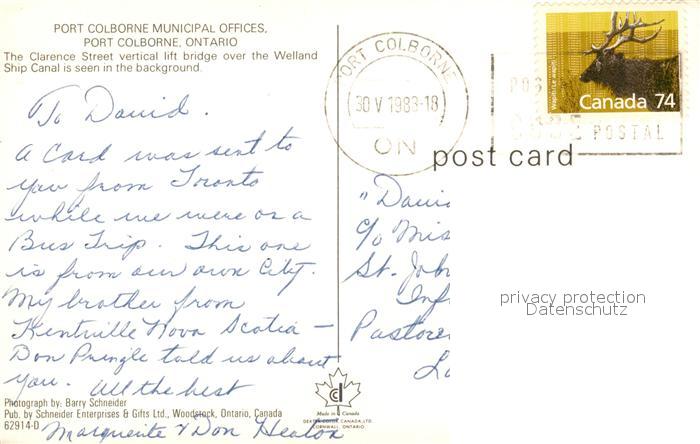 PORT COLBORNE MUNICIPAL OFFICES,
PORT COLBORNE, ONTARIO
The Clarence Street vertical lift bridge over the Welland
Ship Canal is seen in the background.
To David.
A Card was sent to
you from Toronto
while we were on a
Bus Trip. This one
is from our own City.
My brother from
Kentville Nova Scotia –
Don Pringle told us about
you. All the best
Marguerite & Don Heaton
Photograph by: Barry Schneider
Pub. by Schneider Enterprises & Gifts Ltd., Woodstock, Ontario, Canada
62914-D
Made in Canada
DEXTER COLOR CANADA LTD.
CORNWALL, ONTARIO
PORT COLBORNE
30 V 1989-18
ON
POSTAL
Wapiti/Le wapiti
Canada 74
post card
"Davi
c/o Mis
St. Joh
Inf
Pastore
privacy protection
Datenschutz